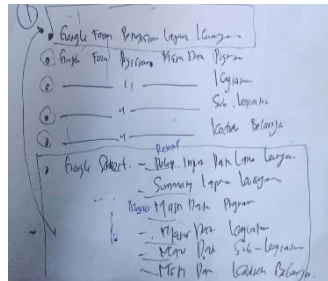 1
• Google Form Pengisian Laporan Keuangan
• Google Form Pengisian Master Data Program
• —— " —— Kegiatan
• —— " —— Sub. Kegiatan
• —— " —— Belanja
Rekap
• Google Sheet. – Input Data Laporan Keuangan
– Summary Laporan Keuangan
– Master Data Program
– Master Data Kegiatan
– Master Data Sub-Kegiatan
– Master Data Belanja.